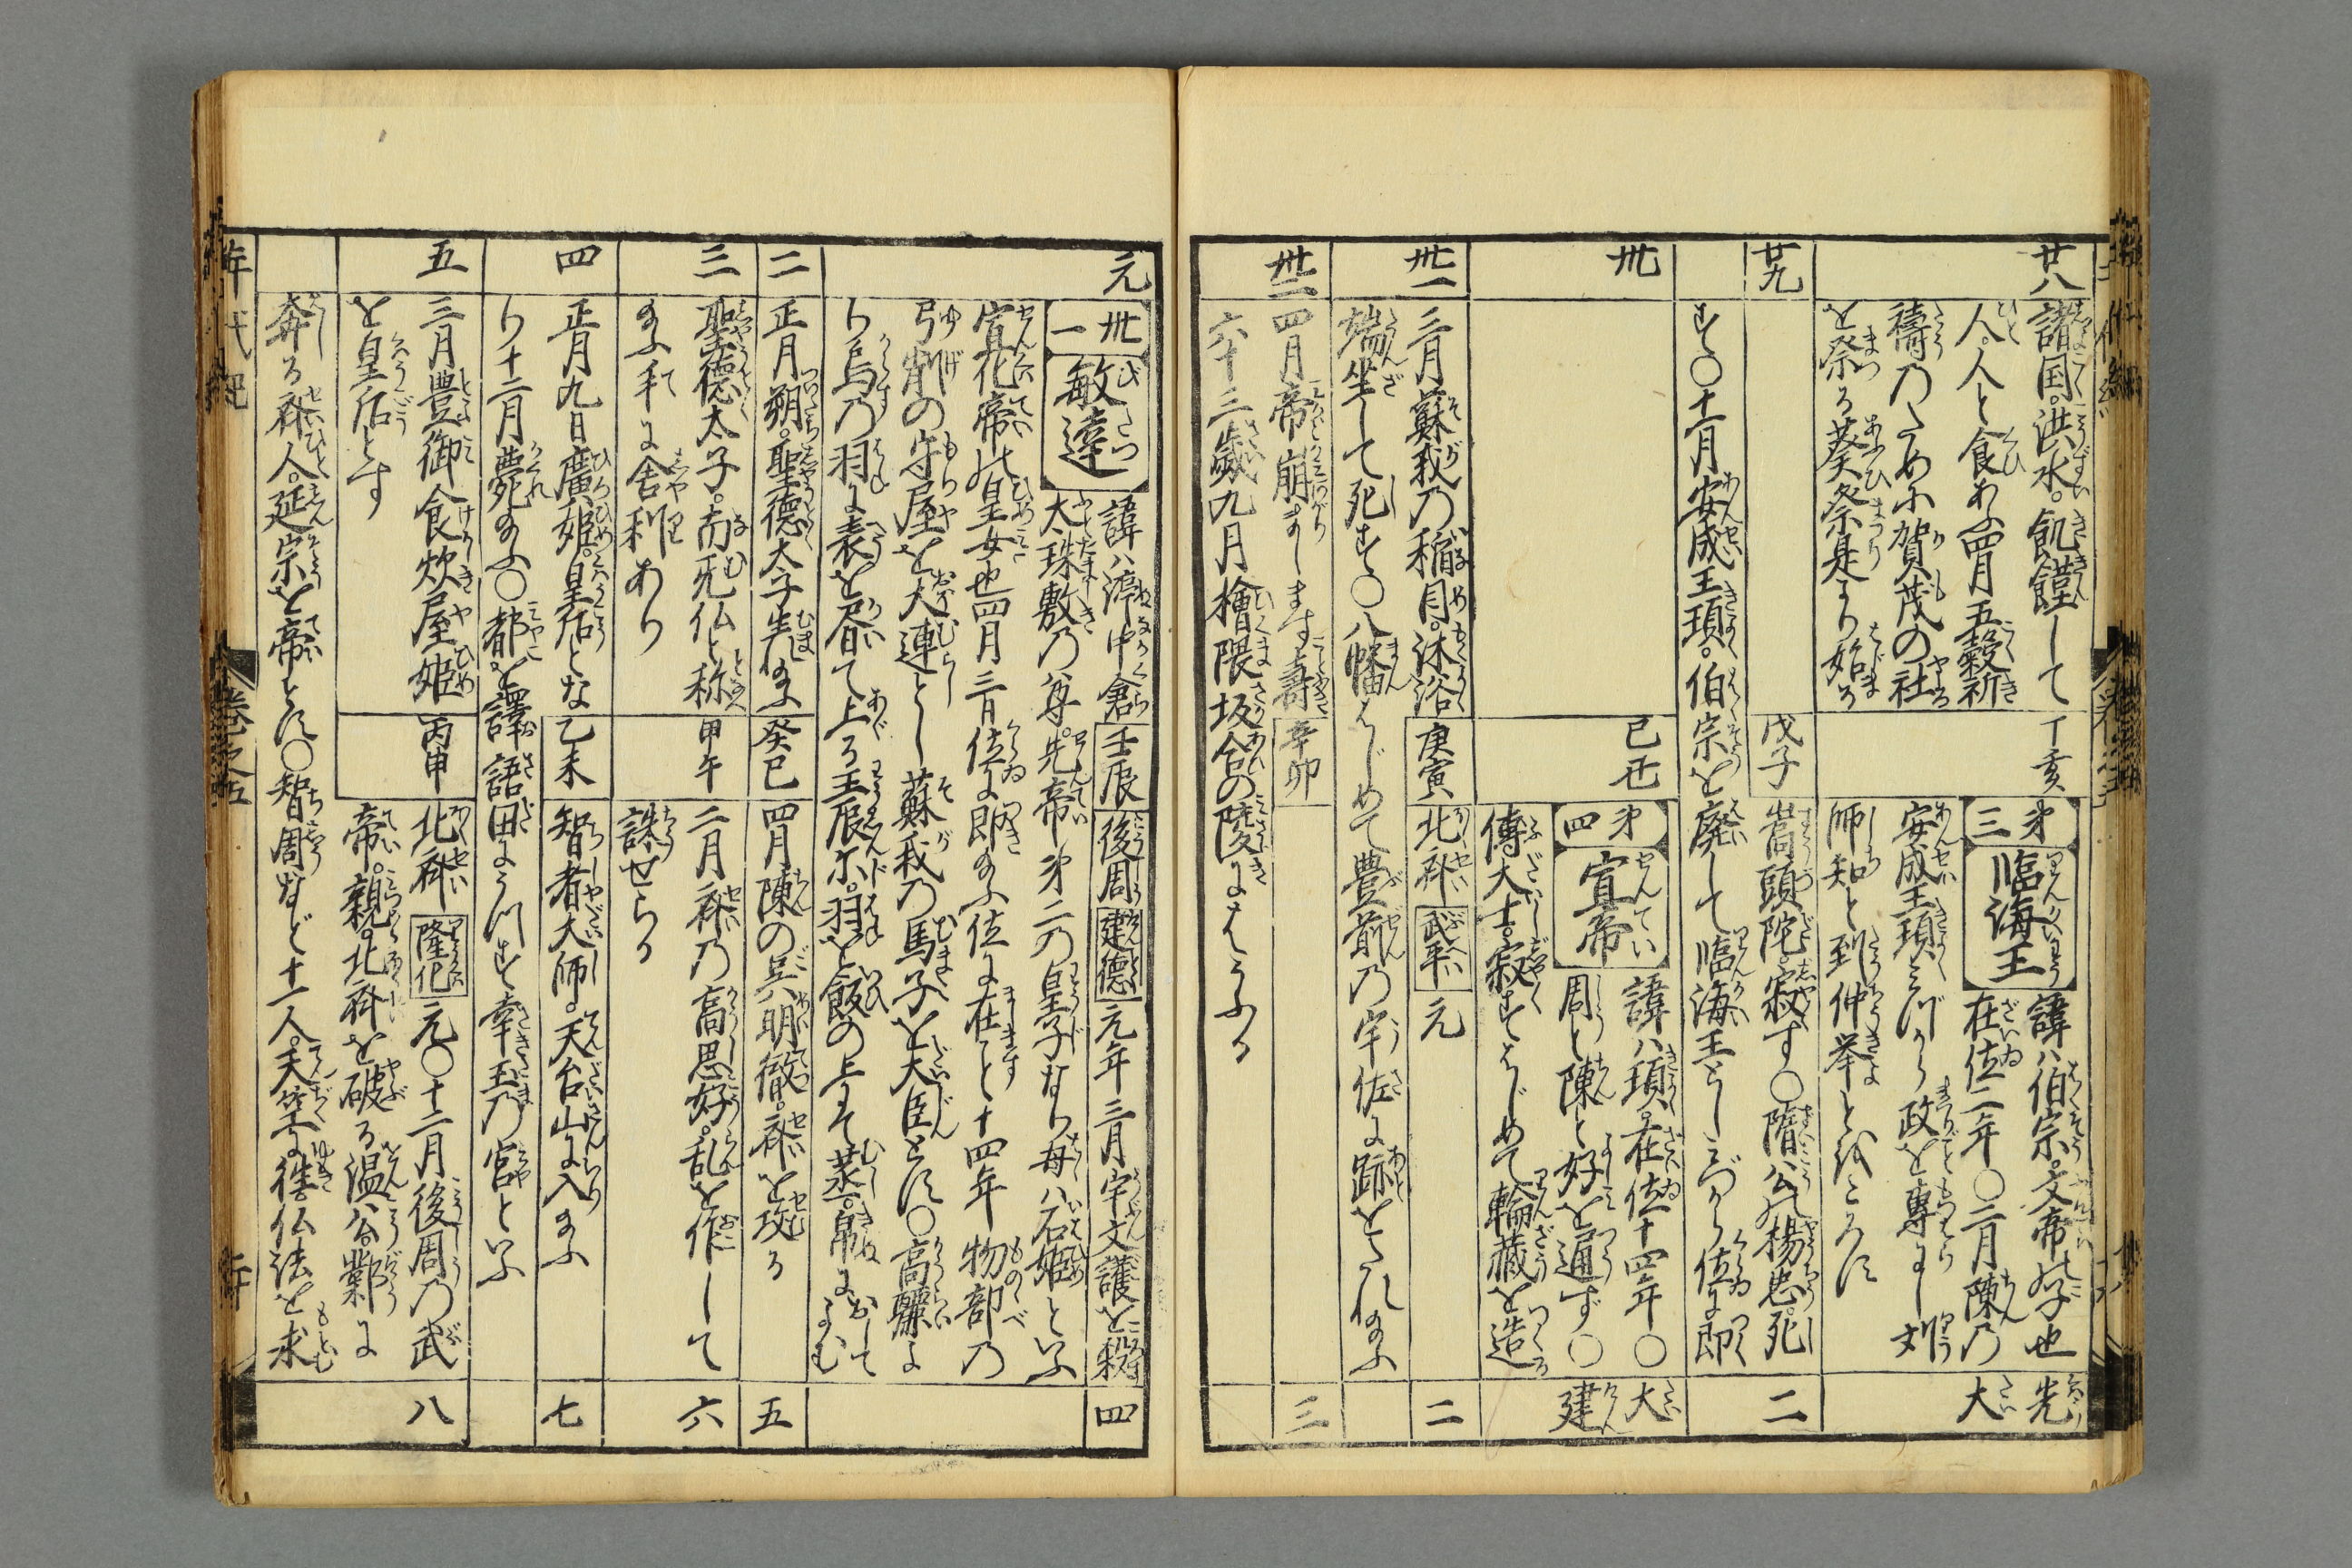 廿八
諸国。洪水。飢饉して
人。人を食ふ四月五穀祈
祷乃ために賀茂の社
を祭る葵祭是より始る
丁亥
第三
臨海王
諱ハ伯宗。文帝の子也
在位二年〇二月陳乃
安成王頊みづから政を専にし刘
師知と到仲挙とをころす
先大
廿九
戊子
嵩頭陀。寂す〇隋公の楊忠。死
す〇十一月安成王頊。伯宗を廃して臨海王としみづから位に即
二
卅
己丑
第四
宣帝
諱ハ頊。在位十四年〇
周と陳と好を通ず〇
傅大士。寂すはじめて輪蔵を造る
大建
卅一
三月蘇我乃稲目。沐浴
端坐して死す〇八幡はじめて豊前乃宇佐に跡をたれ給ふ
庚寅
北斉
武平
元
二
卅二
四月帝崩まします寿
六十三歳九月檜隈坂合の陵にはうふる
辛卯
三
元
卅一
敏達
諱ハ渟中倉
太珠敷乃尊。先帝第二乃皇子なり母ハ石姫といふ
宣化帝の皇女也四月三日位に即給ふ位に在こと十四年物部乃
弓削の守屋を大連とし蘇我乃馬子を大臣とす〇高麗よ
り烏乃羽に表を書て上る王辰尓。羽を飯の上にて蒸。帛におしてよむ
壬辰
後周
建徳
元年三月宇文護を殺す
四
二
正月朔。聖徳太子生れ給ふ
癸巳
四月陳の兵明徹。斉を攻る
五
三
聖徳太子。南无仏と称
給ふ手に舎利あり
甲午
二月斉乃高思好。乱を作して
誅せらる
六
四
正月九日廣姫。皇后とな
り十二月薨給ふ〇都を譯語田にうつす幸玉乃宮といふ
乙未
智者大師。天台山に入給ふ
七
五
三月豊御食炊屋姫
を皇后とす
丙申
北斉
隆化
元〇十二月後周乃武
帝。親。北斉を破る温公。鄴に
奔る斉人。延宗を帝とす〇智周など十一人。天竺に往仏法を求
八
年代記
巻之五